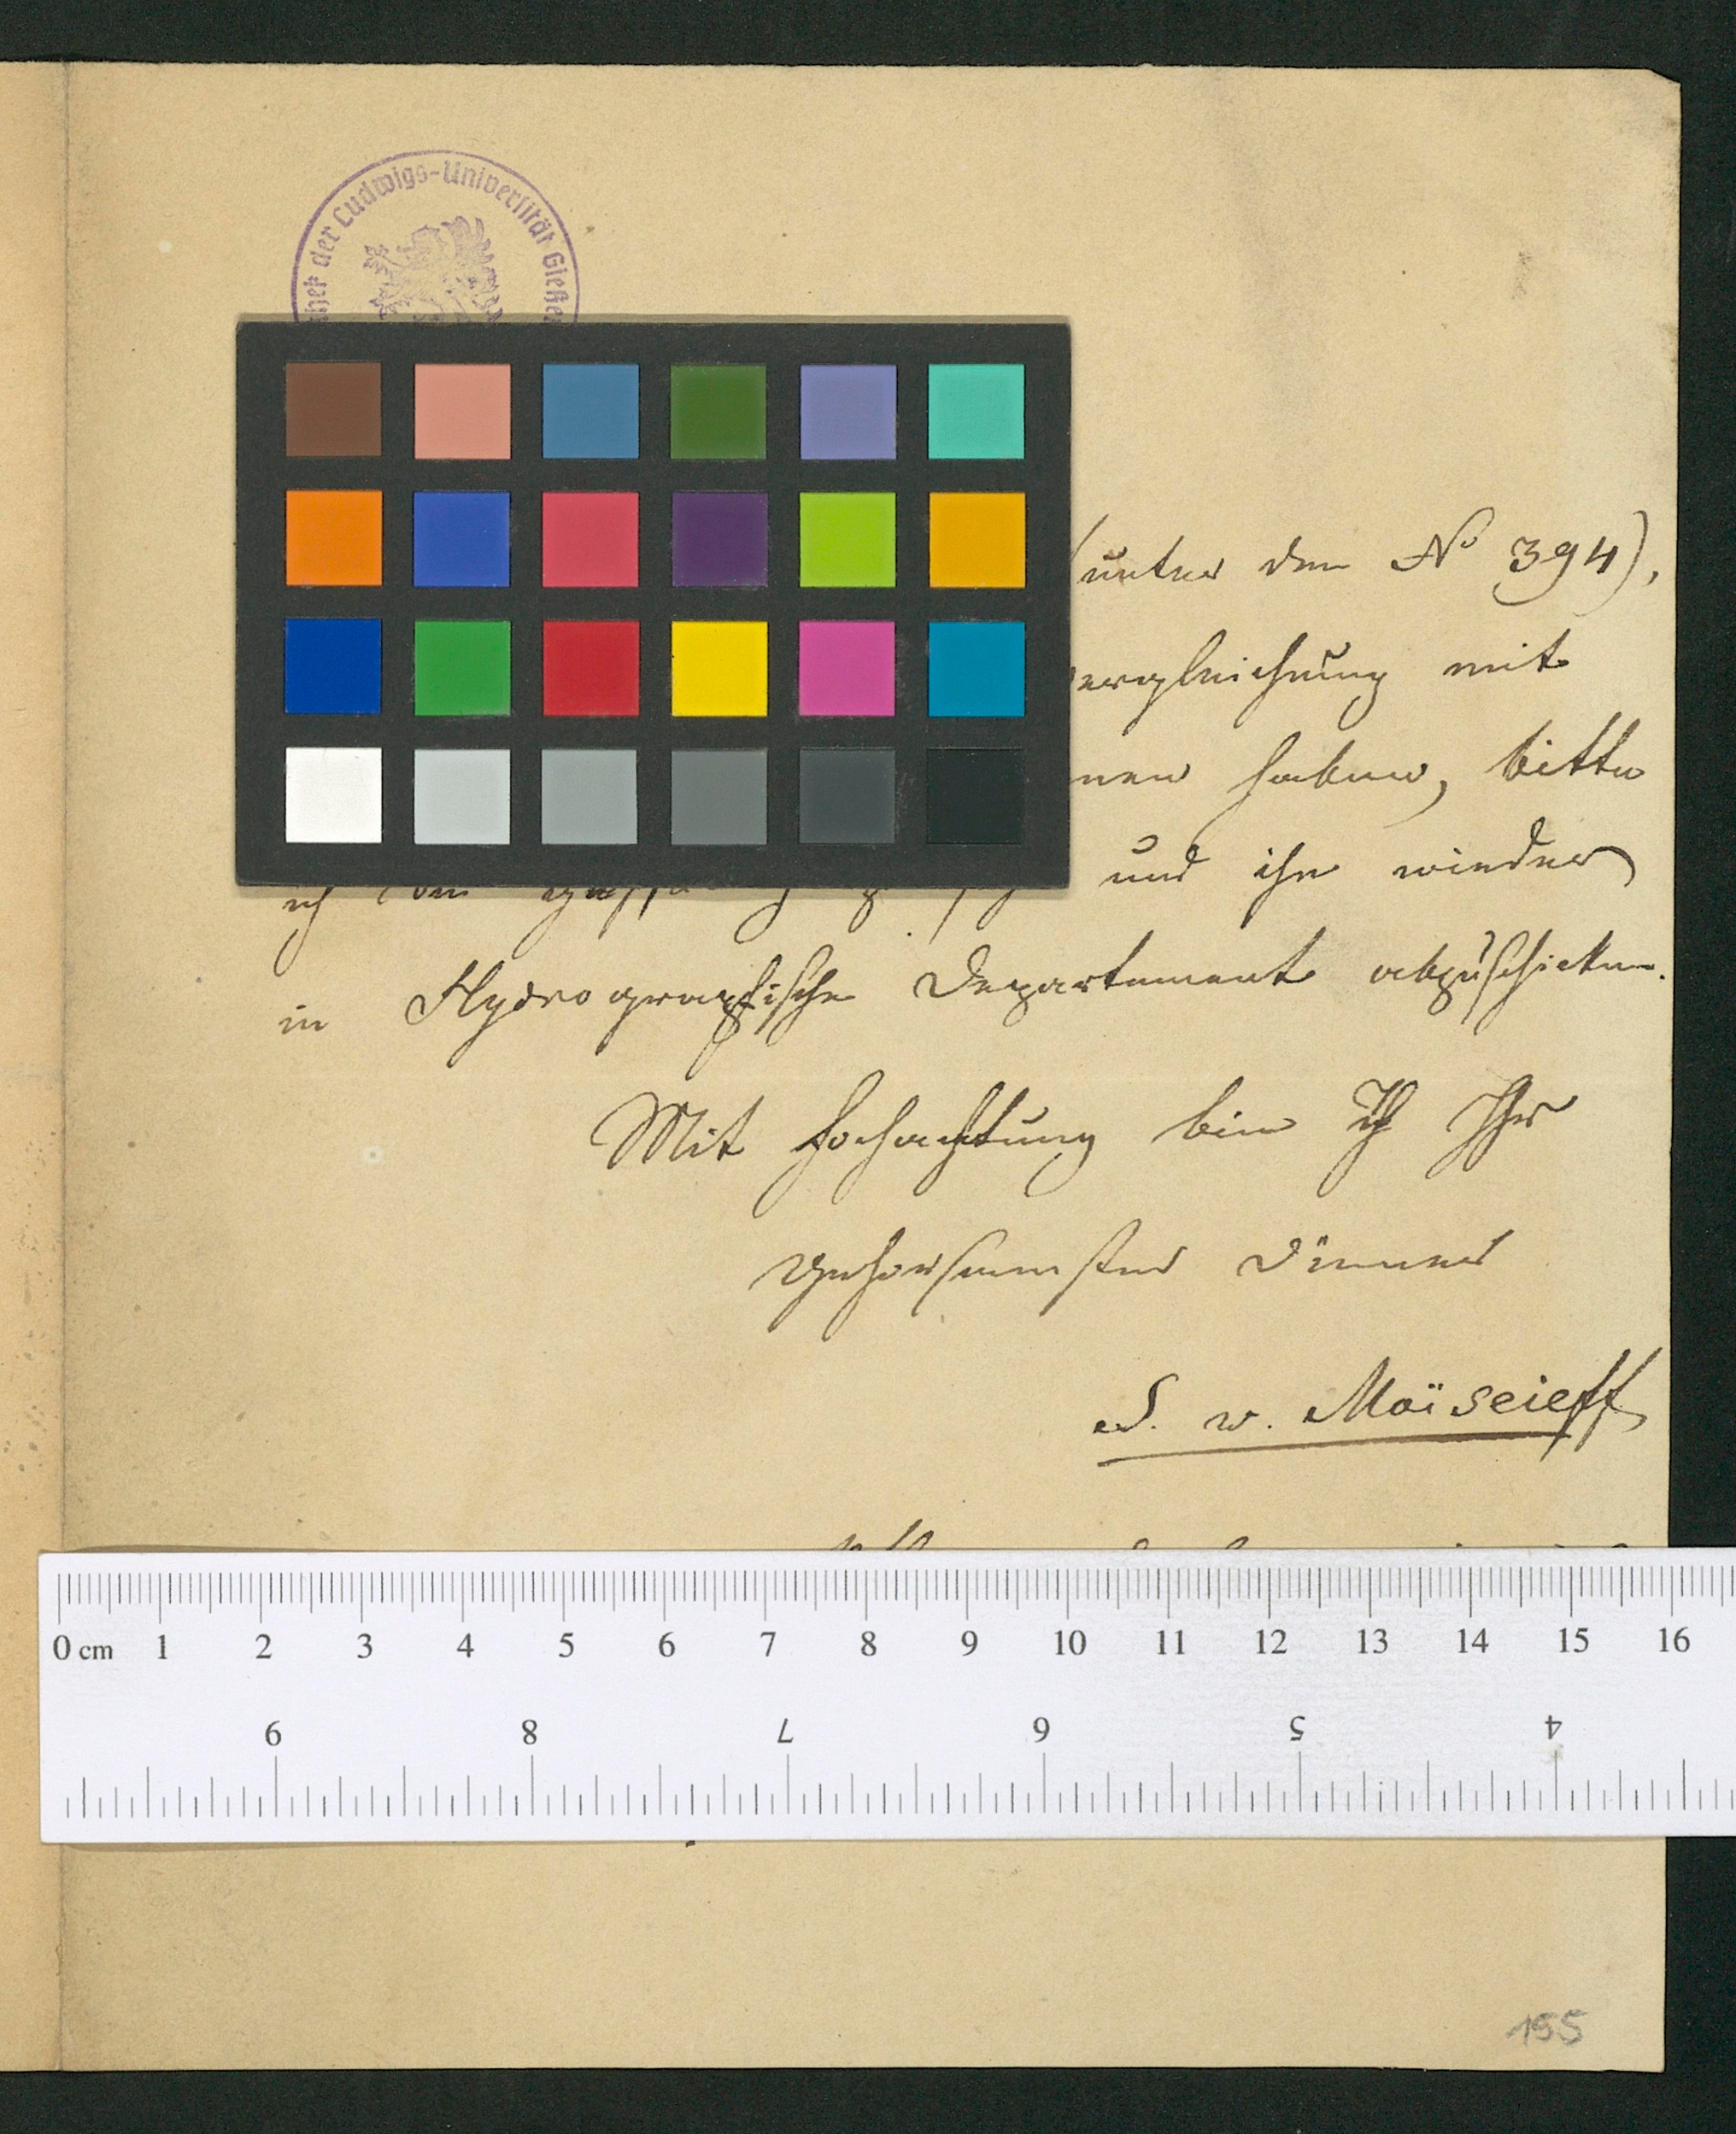 der Ludwigs-Universität
(unter den No 394),
mit
haben, bitte
und ihn wieder
in Hydrographische Departement abzuschicken.
Mit Hochachtung bin Ich Ihr
Gehorsamster Diener
S. w. Moïseieff
0 cm 1 2 3 4 5 6 7 8 9 10 11 12 13 14 15 16
9 8 7 6 5 4
155